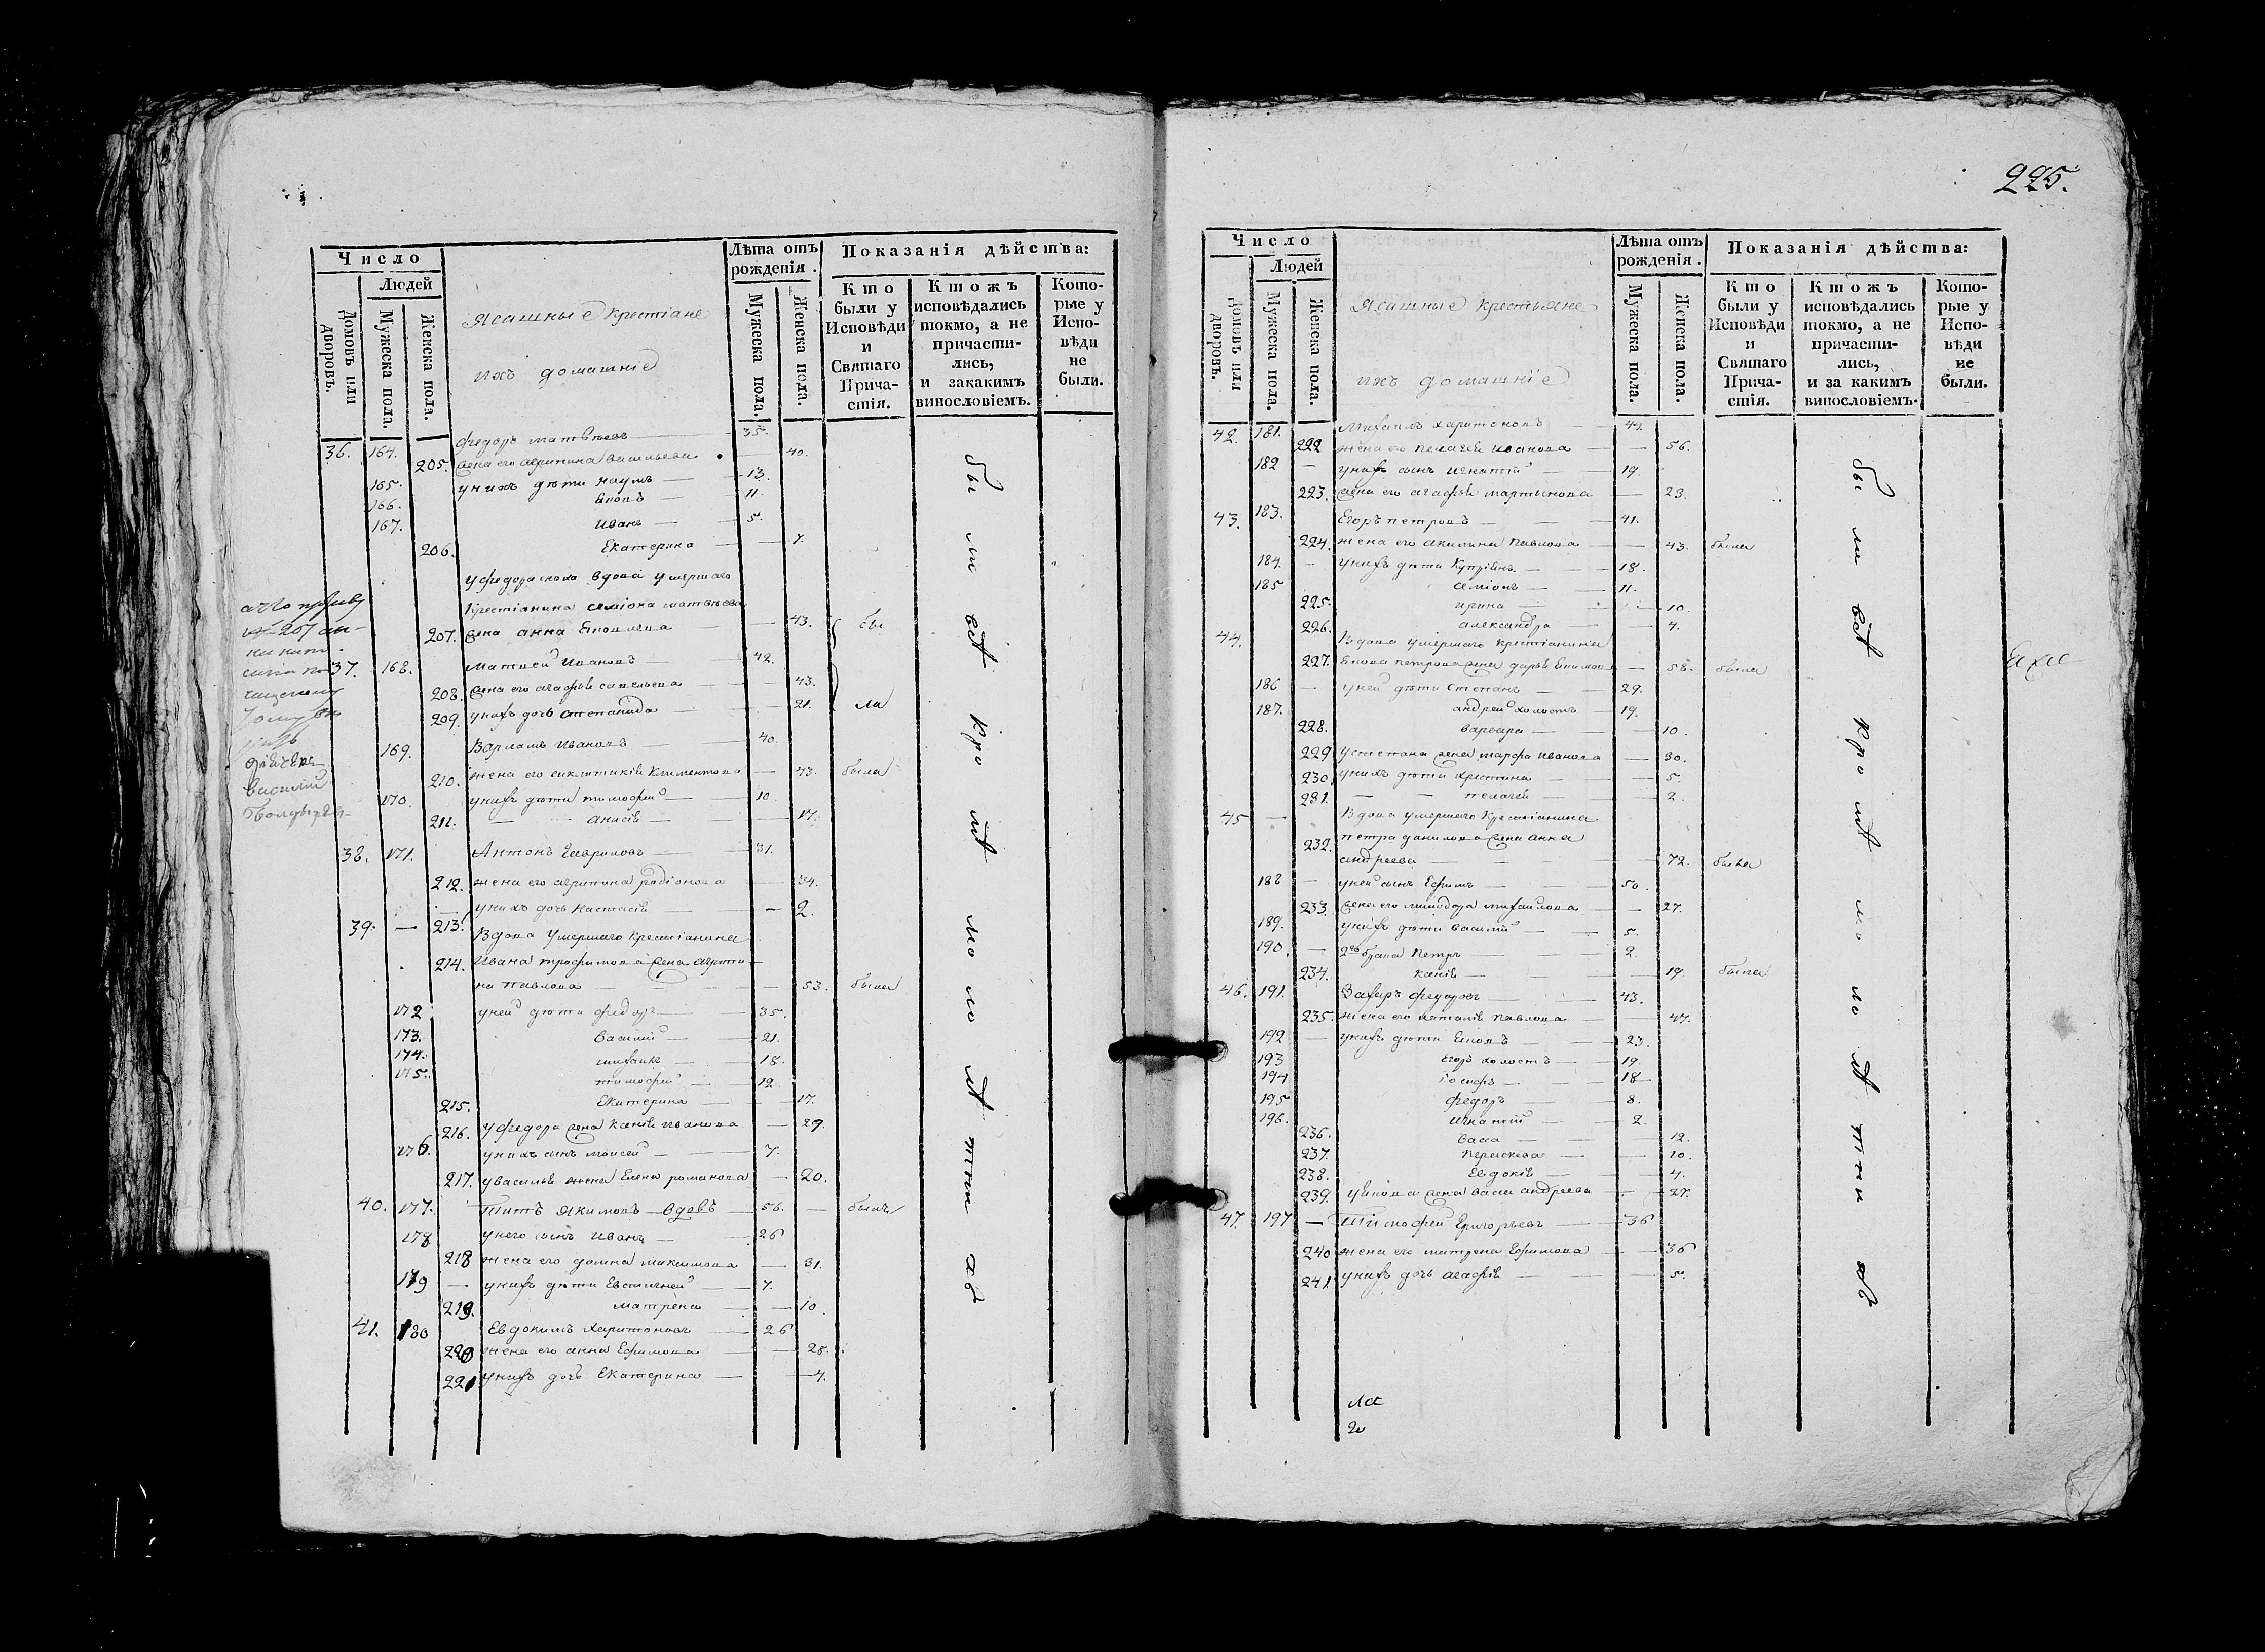 Число
Людей
Домовъ или дворовъ.
Мужеска пола.
Женска пола.
Ясашные крестіане
ихъ домашніе
Лѣта отъ рожденія.
Мужеска пола.
Женска пола.
Показанія дѣйства:
Кто были у Исповѣди и Святаго Прича-стія.
Ктожъ исповѣдались токмо, а не причасти-лись, и закакимъ винословіемъ.
Кото-рые у Испо-вѣди не были.
36. 164. федоръ матвѣевъ 35.
205. жена его агрипина васильева 40.
165. унихъ дѣти наумъ 13.
166. Яковъ 11.
167. Иванъ 5.
206. Екатерина 7.
уфедора сноха вдова умершаго
крестіанина семіона матвѣева
207. жена анна Яковлева 43. бы
37. 168. матвей Ивановъ 42.
208. жена его агафья савельева 43.
209. унихъ дочь степанида 21. ли
169. Варламъ Ивановъ 40.
210. жена его Климентова 43. была
170. унихъ дѣти тимофей 10.
211. анисія 17.
38. 171. Антонъ Гавриловъ 31.
212. жена его агрипина родіонова 34.
унихъ дочь настасія 2.
39. 213. Вдова умершаго крестіанина
214. Ивана трофимова жена агрипи-
на Павлова 53. была
172 уней дѣти федоръ 35.
173. василий 21.
174. михаилъ 18.
175. тимофей 12
215. Екатерина 17.
216. уфедора жена ксенія Иванова 29.
176 унихъ сынъ моисей 7.
217. увасилья жена Елена романова 20.
40. 177. Титъ Якимовъ вдовъ 56. былъ
178 унего сынъ Иванъ 26
218 жена его домна максимова 31.
179 унихъ дѣти Евстигней 7.
219. матрена 10.
41. 180 Евдокимъ Харитоновъ 26
220 жена его анна Ефимова 25.
221 унихъ дочь Екатерина 4.
бы ли всѣ кро мѣ мо ло лѣ тни хъ
225.
Число
Людей
Домовъ или дворовъ.
Мужеска пола.
Женска пола.
Ясашные крестьяне
и
ихъ домашніе
Лѣта отъ рожденія.
Мужеска пола.
Женска пола.
Показанія дѣйства:
Кто были у Исповѣди и Святаго Прича-стія.
Ктожъ исповѣдались токмо, а не причасти-лись, и за какимъ винословіемъ.
Кото-рые у Испо-вѣди не были.
42. 181. Михаилъ харитоновъ 44.
222 жена его пелагея Иванова 56.
182 унихъ сынъ игнатій 19.
223. жена его агафья мартынова 23.
43. 183. Егоръ петровъ 41.
224. жена его акилина Павлова 43. была
184. унихъ дѣти Купріянъ 18.
185 семіонъ 11.
225. ирина 10.
226. александра 4.
44. Вдова умершаго крестіанина
227. Якова петрова жена дарья Екимова 58. была
186 уней дѣти степанъ 29.
187. андрей холостъ 19.
228. варвара 10.
229 устепана жена марфа Иванова 30.
230. унихъ дѣти христина 5.
231. пелагея 2.
45 Вдова умершаго крестіанина
232. петра данилова жена анна
андреева 72. была
188 уней сынъ Ефимъ 50.
233. жена его минодора михайлова 27.
189. унихъ дѣти василий 5.
190. 2го брака Петръ 2.
234. ксенія 19. была
46. 191. Захаръ федоровъ 43.
235. жена его наталія Павлова 47.
192 унихъ дѣти Яковъ 23.
193 Егоръ холостъ 19.
194 Іосифъ 18
195 федоръ 8.
196. Игнатій 2.
236. васса 12.
237. Параскева 10.
238. Евдокія 4.
239. уякова жена васса андреева 27.
47. 197 Тимофей Григорьевъ 36
240 жена его матрена Ефимова 36
241 унихъ дочь агафія 5.
бы ли всѣ кро мѣ мо ло лѣ тни хъ